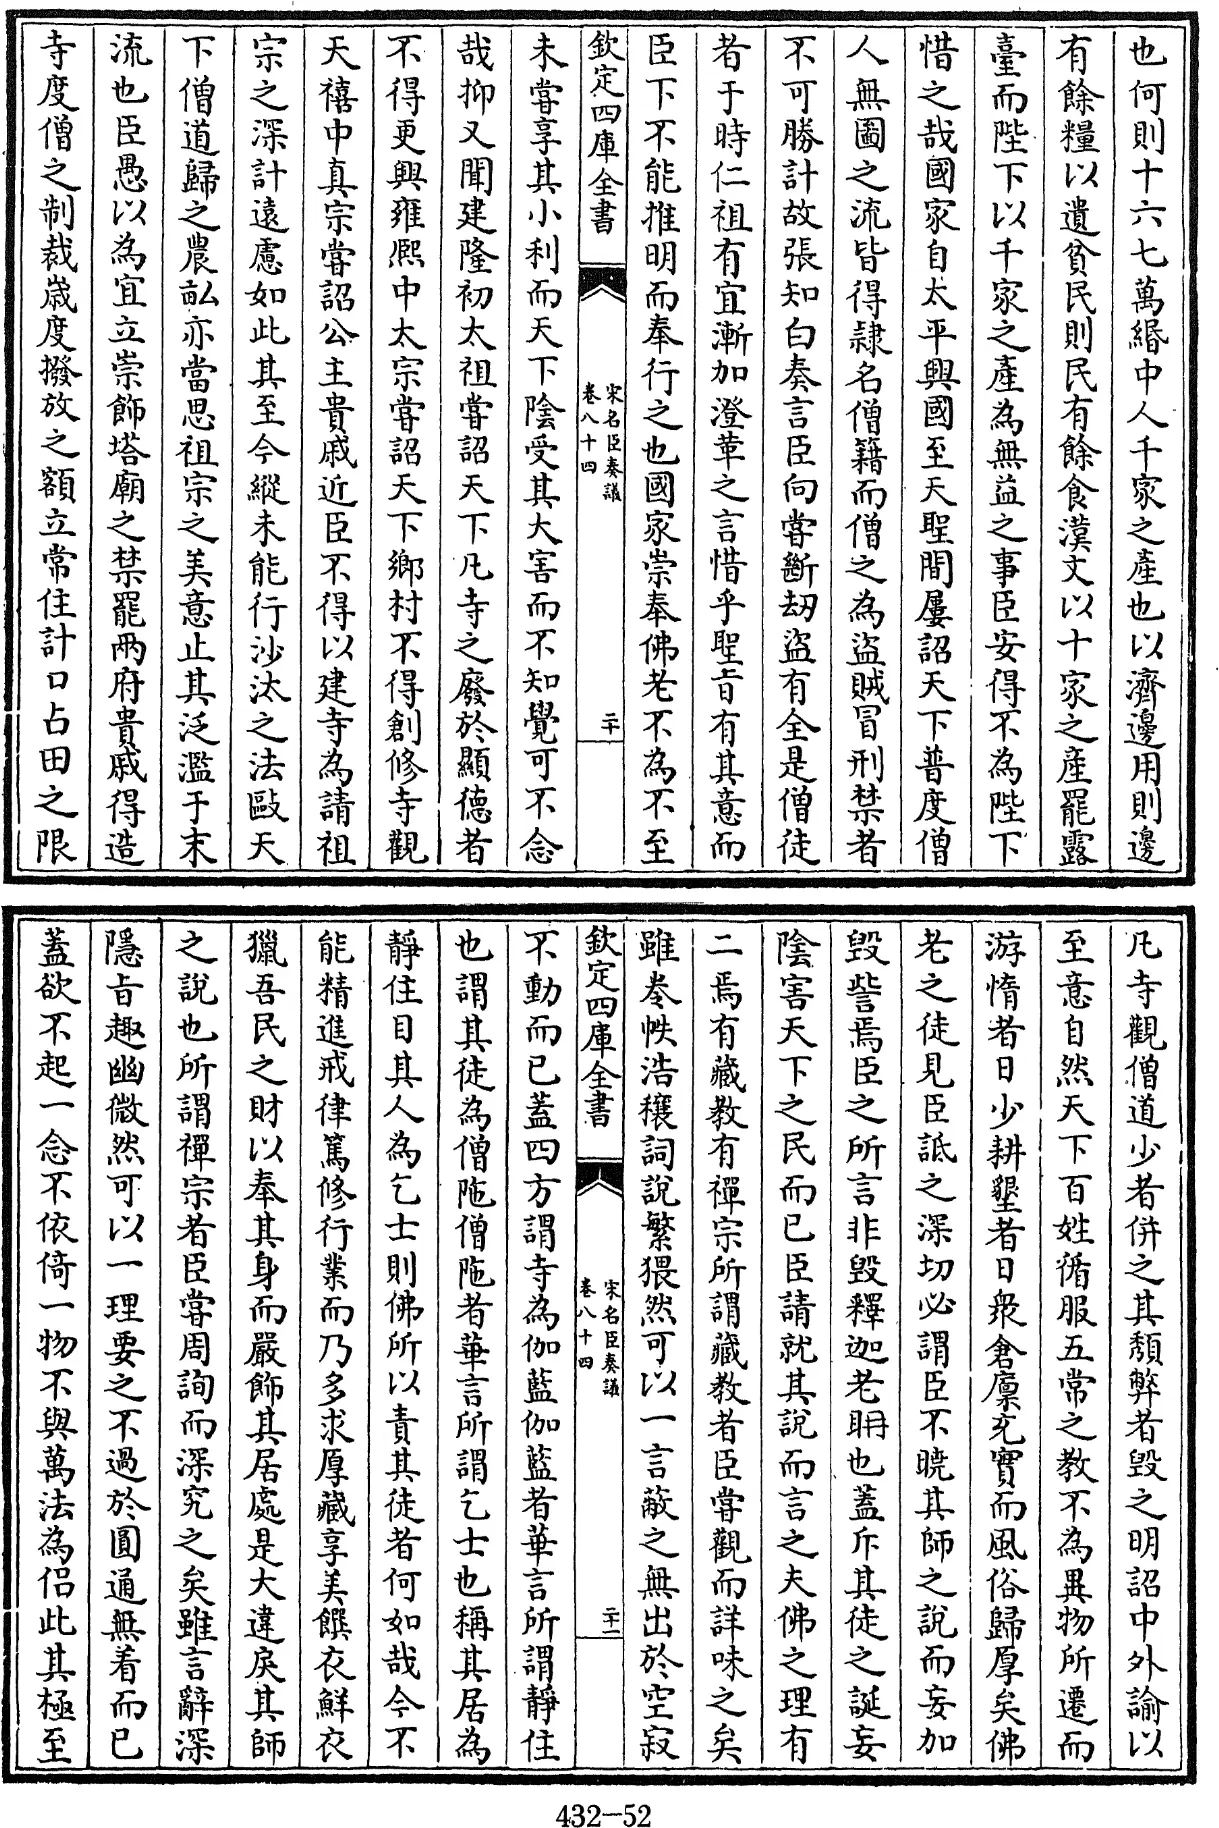 也何則十六七萬緡中人千家之產也以濟邊用則邊
有餘糧以遺貧民則民有餘食漢文以十家之產罷露
臺而陛下以千家之產為無益之事臣安得不為陛下
惜之哉國家自太平興國至天聖間屢詔天下普度僧
人無圖之流皆得隷名僧籍而僧之為盜賊冒刑禁者
不可勝計故張知白奏言臣向嘗斷刼盜有全是僧徒
者于時仁祖有宜漸加澄革之言惜乎聖旨有其意而
臣下不能推明而奉行之也國家崇奉佛老不為不至
欽定四庫全書
宋名臣奏議
卷八十四
二十
未嘗享其小利而天下陰受其大害而不知覺可不念
哉抑又聞建隆初太祖嘗詔天下凡寺之廢於顯德者
不得更興雍熙中太宗嘗詔天下鄉村不得創修寺觀
天禧中真宗嘗詔公主貴戚近臣不得以建寺為請祖
宗之深計遠慮如此其至今縱未能行沙汰之法毆天
下僧道歸之農畝亦當思祖宗之美意止其泛濫于末
流也臣愚以為宜立崇飾塔廟之禁罷兩府貴戚得造
寺度僧之制裁歲度撥放之額立常住計口占田之限
凡寺觀僧道少者併之其頹弊者毀之明詔中外諭以
至意自然天下百姓循服五常之教不為異物所遷而
游惰者日少耕墾者日衆倉廪充實而風俗歸厚矣佛
老之徒見臣詆之深切必謂臣不曉其師之說而妄加
毀訾焉臣之所言非毀釋迦老耼也蓋斥其徒之誕妄
陰害天下之民而已臣請就其說而言之夫佛之理有
二焉有藏教有禪宗所謂藏教者臣嘗觀而詳味之矣
雖卷帙浩穰詞說繁猥然可以一言蔽之無出於空寂
欽定四庫全書
宋名臣奏議
卷八十四
二十一
不動而已蓋四方謂寺為伽藍伽藍者華言所謂靜住
也謂其徒為僧陁僧陁者華言所謂乞士也稱其居為
靜住目其人為乞士則佛所以責其徒者何如哉今不
能精進戒律篤修行業而乃多求厚藏享美饌衣鮮衣
獵吾民之財以奉其身而嚴飾其居處是大違戾其師
之說也所謂禪宗者臣嘗周詢而深究之矣雖言辭深
隱旨趣幽微然可以一理要之不過於圓通無着而已
蓋欲不起一念不依倚一物不與萬法為侣此其極至
432-52